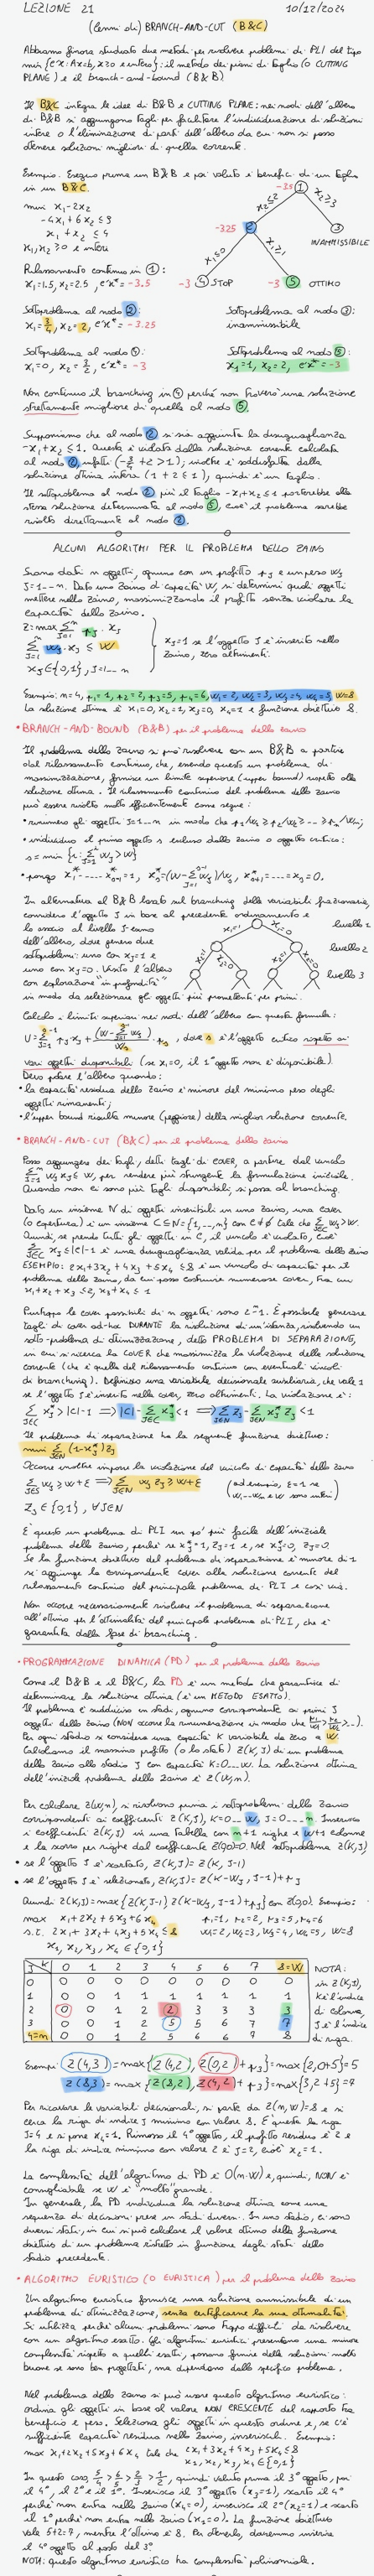 LEZIONE 21 10/12/2024
(cenni di) BRANCH-AND-CUT (B&C)
Abbiamo finora studiato due metodi per risolvere problemi di PLI del tipo
min{c'x: Ax=b, x≥0 e intero}: il metodo dei piani di taglio (o CUTTING
PLANE) e il branch-and-bound (B&B)
Il B&C integra le idee di B&B e CUTTING PLANE: nei nodi dell'albero
di B&B si aggiungono tagli per facilitare l'individuazione di soluzioni
intere o l'eliminazione di parti dell'albero da cui non si possono
ottenere soluzioni migliori di quella corrente.
Esempio. Eseguo prima un B&B e poi valuto i benefici di un taglio
in un B&C.
min x₁-2x₂
-4x₁+6x₂≤9
x₁+x₂≤4
x₁,x₂≥0 e interi
-3.5 1
x₂≤2 x₂≥3
-3.25 2 3
INAMMISSIBILE
x₁≤0 x₁≥1
-3 4 STOP -3 5 OTTIMO
Rilassamento continuo in 1:
x₁=1.5, x₂=2.5, c'x*=-3.5
Sottoproblema al nodo 2:
x₁=3/4, x₂=2, c'x*=-3.25
Sottoproblema al nodo 3:
inammissibile
Sottoproblema al nodo 4:
x₁=0, x₂=3/2, c'x*=-3
Sottoproblema al nodo 5:
x₁=1, x₂=2, c'x*=-3
Non continuo il branching in 4 perché non troverei una soluzione
strettamente migliore di quella al nodo 5.
Supponiamo che al nodo 2 si sia aggiunta la disuguaglianza
-x₁+x₂≤1. Questa è violata dalla soluzione corrente calcolata
al nodo 2, infatti (-3/4+2>1); inoltre è soddisfatta dalla
soluzione ottima intera (-1+2≤1), quindi è un taglio.
Il sottoproblema al nodo 2 più il taglio -x₁+x₂≤1 porterebbe alla
stessa soluzione determinata al nodo 5, cioè il problema sarebbe
risolto direttamente al nodo 2.
ALCUNI ALGORITMI PER IL PROBLEMA DELLO ZAINO
Siano dati n oggetti, ognuno con un profitto pj e un peso wj
J=1...n. Dato uno zaino di capacità W, si determini quali oggetti
mettere nello zaino, massimizzando il profitto senza violare la
capacità dello zaino.
Z=max Σ pj·xj
Σ wj·xj ≤ W
xj∈{0,1}, J=1...n
xj=1 se l'oggetto J è inserito nello
zaino, zero altrimenti.
Esempio: n=4, p₁=1, p₂=2, p₃=5, p₄=6, w₁=2, w₂=3, w₃=4, w₄=5, W=8
La soluzione ottima è x₁=0, x₂=1, x₃=0, x₄=1 e funzione obiettivo 8.
• BRANCH-AND-BOUND (B&B) per il problema dello zaino
Il problema dello zaino si può risolvere con un B&B a partire
dal rilassamento continuo, che, essendo questo un problema di
massimizzazione, fornisce un limite superiore (upper bound) rispetto alla
soluzione ottima. Il rilassamento continuo del problema dello zaino
può essere risolto molto efficientemente come segue:
• rinumero gli oggetti J=1...n in modo che p₁/w₁≥p₂/w₂≥...≥pn/wn;
• individuo il primo oggetto s escluso dallo zaino o oggetto critico:
s=min{i: Σ wj>W}
• pongo x₁*=...=x*s-1=1, x*s=(W-Σwj)/ws, x*s+1=...=xn=0.
In alternativa al B&B basato sul branching delle variabili frazionarie,
considero l'oggetto J in base al precedente ordinamento e
lo associo al livello J-esimo
dell'albero, dove genero due
sottoproblemi: uno con xj=1 e
uno con xj=0. Visito l'albero
con esplorazione "in profondità"
in modo da selezionare gli oggetti più promettenti per primi.
x₁=1 x₁=0 livello 1
x₂=1 x₂=0 x₂=1 x₂=0 livello 2
livello 3
Calcolo i limiti superiori nei nodi dell'albero con questa formula:
U=Σ pj xj + (W-Σwj)/ws · ps, dove s è l'oggetto critico rispetto ai
vari oggetti disponibili (se x₁=0, il 1° oggetto non è disponibile).
Devo potare l'albero quando:
• la capacità residua dello zaino è minore del minimo peso degli
oggetti rimanenti;
• l'upper bound risulta minore (peggiore) della miglior soluzione corrente.
• BRANCH-AND-CUT (B&C) per il problema dello zaino
Posso aggiungere dei tagli, detti tagli di COVER, a partire dal vincolo
Σ wj xj≤W, per rendere più stringente la formulazione iniziale.
Quando non ci sono più tagli disponibili, si passa al branching.
Dato un insieme N di oggetti inseribili in uno zaino, una cover
(o copertura) è un insieme C⊆N={1,...,n} con C≠∅ tale che Σ wj>W.
Quindi, se prendo tutti gli oggetti in C, il vincolo è violato, cioè
Σ xj≤|C|-1 è una disuguaglianza valida per il problema dello zaino
ESEMPIO: 2x₁+3x₂+4x₃+5x₄≤8 è un vincolo di capacità per il
problema dello zaino, da cui posso costruire numerose cover, tra cui
x₁+x₂+x₃≤2, x₃+x₄≤1
Purtroppo le cover possibili di n oggetti sono 2ⁿ-1. È possibile generare
tagli di cover ad-hoc DURANTE la risoluzione di un'istanza, risolvendo un
sotto-problema di ottimizzazione, detto PROBLEMA DI SEPARAZIONE,
in cui si ricerca la COVER che massimizza la violazione della soluzione
corrente (che è quella del rilassamento continuo con eventuali vincoli
di branching). Definiamo una variabile decisionale ausiliaria, che vale 1
se l'oggetto J è inserito nella cover, zero altrimenti. La violazione è:
Σ xj*>|C|-1 ⟹ |C|-Σ xj*<1 ⟹ Σ zj-Σ xj* zj<1
Il problema di separazione ha la seguente funzione obiettivo:
min Σ (1-xj*)zj
Occorre inoltre imporre la violazione del vincolo di capacità dello zaino
Σ wj≥W+ε ⟹ Σ wj zj≥W+ε
(ad esempio, ε=1 se
w₁...wn e W sono interi)
zj∈{0,1}, ∀J∈N
È questo un problema di PLI un po' più facile dell'iniziale
problema dello zaino, perché se xj*=1, zj=1 e, se xj*=0, zj=0.
Se la funzione obiettivo del problema di separazione è minore di 1
si aggiunge la corrispondente cover alla soluzione corrente del
rilassamento continuo del principale problema di PLI e così via.
Non occorre necessariamente risolvere il problema di separazione
all'ottimo per l'ottimalità del principale problema di PLI, che è
garantita dalla fase di branching.
• PROGRAMMAZIONE DINAMICA (PD) per il problema dello zaino
Come il B&B e il B&C, la PD è un metodo che garantisce di
determinare la soluzione ottima (è un METODO ESATTO).
Il problema è suddiviso in stadi, ognuno corrispondente ai primi J
oggetti dello zaino (NON occorre la rinumerazione in modo che p₁/w₁≥p₂/w₂≥...).
Per ogni stadio si considera una capacità K variabile da zero a W.
Calcoliamo il massimo profitto (o lo stato) Z(K,J) di un problema
dello zaino allo stadio J con capacità K=0...W. La soluzione ottima
dell'iniziale problema dello zaino è Z(W,n).
Per calcolare Z(W,n), si risolvono prima i sottoproblemi dello zaino
corrispondenti ai coefficienti Z(K,J), K=0...W, J=0...n. Inserisco
i coefficienti Z(K,J) in una tabella con n+1 righe e W+1 colonne
e la scorro per righe dal coefficiente Z(0,0)=0. Nel sottoproblema Z(K,J)
• se l'oggetto J è scartato, Z(K,J)=Z(K,J-1)
• se l'oggetto J è selezionato, Z(K,J)=Z(K-wj,J-1)+pj
Quindi Z(K,J)=max{Z(K,J-1), Z(K-wj,J-1)+pj} con Z(0,0). Esempio:
max x₁+2x₂+5x₃+6x₄ p₁=1, p₂=2, p₃=5, p₄=6
s.t. 2x₁+3x₂+4x₃+5x₄≤8 w₁=2, w₂=3, w₃=4, w₄=5, W=8
x₁, x₂, x₃, x₄∈{0,1}
J K 0 1 2 3 4 5 6 7 8=W
0 0 0 0 0 0 0 0 0 0
1 0 0 1 1 1 1 1 1 1
2 0 0 1 2 2 3 3 3 3
3 0 0 1 2 5 5 6 7 7
4=n 0 0 1 2 5 6 6 7 8
NOTA:
in Z(K,J),
K è l'indice
di colonna,
J è l'indice
di riga.
Esempi: Z(4,3)=max{Z(4,2), Z(0,2)+p₃}=max{2,0+5}=5
Z(8,3)=max{Z(8,2), Z(4,2)+p₃}=max{3,2+5}=7
Per ricavare le variabili decisionali, si parte da Z(W,n)=8 e si
cerca la riga di indice J minimo con valore 8. È questa la riga
J=4 e si pone x₄=1. Rimosso il 4° oggetto, il profitto residuo è 2 e
la riga di indice minimo con valore 2 è J=2, cioè x₂=1.
La complessità dell'algoritmo di PD è O(n·W) e, quindi, NON è
consigliabile se W è "molto" grande.
In generale, la PD individua la soluzione ottima come una
sequenza di decisioni prese in stadi diversi. In uno stadio, ci sono
diversi stati, in cui si può calcolare il valore ottimo della funzione
obiettivo di un problema ristretto in funzione degli stati dello
stadio precedente.
• ALGORITMO EURISTICO (O EURISTICA) per il problema dello zaino
Un algoritmo euristico fornisce una soluzione ammissibile di un
problema di ottimizzazione, senza certificarne la sua ottimalità.
Si utilizza perché alcuni problemi sono troppo difficili da risolvere
con un algoritmo esatto. Gli algoritmi euristici presentano una minore
complessità rispetto a quelli esatti, possono fornire delle soluzioni molto
buone se sono ben progettati, ma dipendono dallo specifico problema.
Nel problema dello zaino si può usare questo algoritmo euristico:
ordina gli oggetti in base al valore NON CRESCENTE del rapporto tra
beneficio e peso. Seleziona gli oggetti in questo ordine e, se c'è
sufficiente capacità residua nello zaino, inseriscili. Esempio:
max x₁+2x₂+5x₃+6x₄ tale che 2x₁+3x₂+4x₃+5x₄≤8
x₁, x₂, x₃, x₄∈{0,1}
In questo caso, 5/4>6/5>2/3>1/2, quindi valuto prima il 3° oggetto, poi
il 4°, il 2° e il 1°. Inserisco il 3° oggetto (x₃=1), scarto il 4°
perché non entra nello zaino (x₄=0), inserisco il 2° (x₂=1) e scarto
il 1° perché non entra nello zaino (x₁=0). La funzione obiettivo
vale 5+2=7, mentre l'ottimo è 8. Per ottenerlo, dovremmo inserire
il 4° oggetto al posto del 3°.
NOTA: questo algoritmo euristico ha complessità polinomiale.